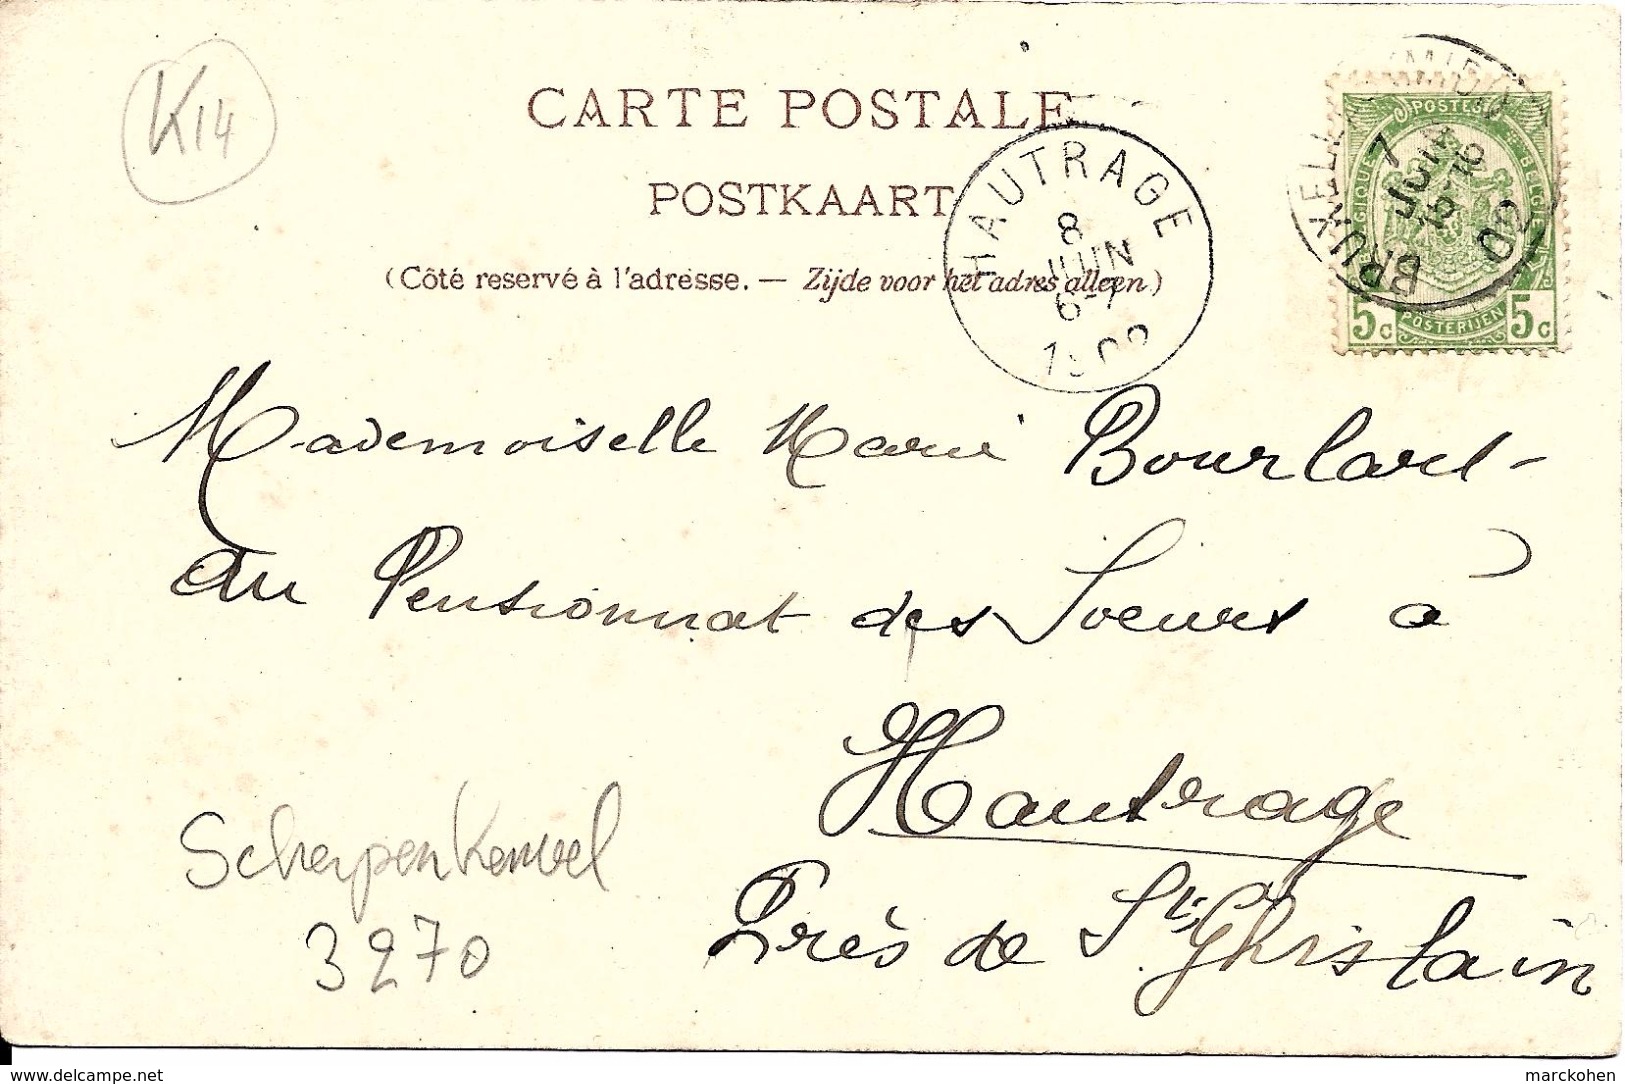 K14
CARTE POSTALE
POSTKAART
(Côté reservé à l'adresse. — Zijde voor het adres alleen)
HAUTRAGE
8
JUIN
6-7
POSTES
BELGIQUE
BELGIË
5c POSTERIJEN 5c
BRUXELLES
7
JUIN
00
Mademoiselle Marie Bourlart-
au Pensionnat des Soeurs à
Hautrage
Près de St. Ghislain
Scherpenheuvel
3270
delcampe.net
marckohen